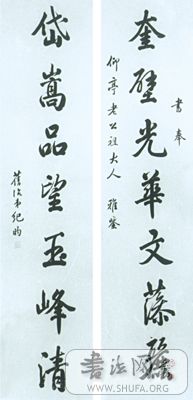 書奉
奎壁光華文藻
仰亭老公祖大人 雅鑒
岱嵩品望玉峰清
舊治弟紀昀
WWW.SHUFA.ORG